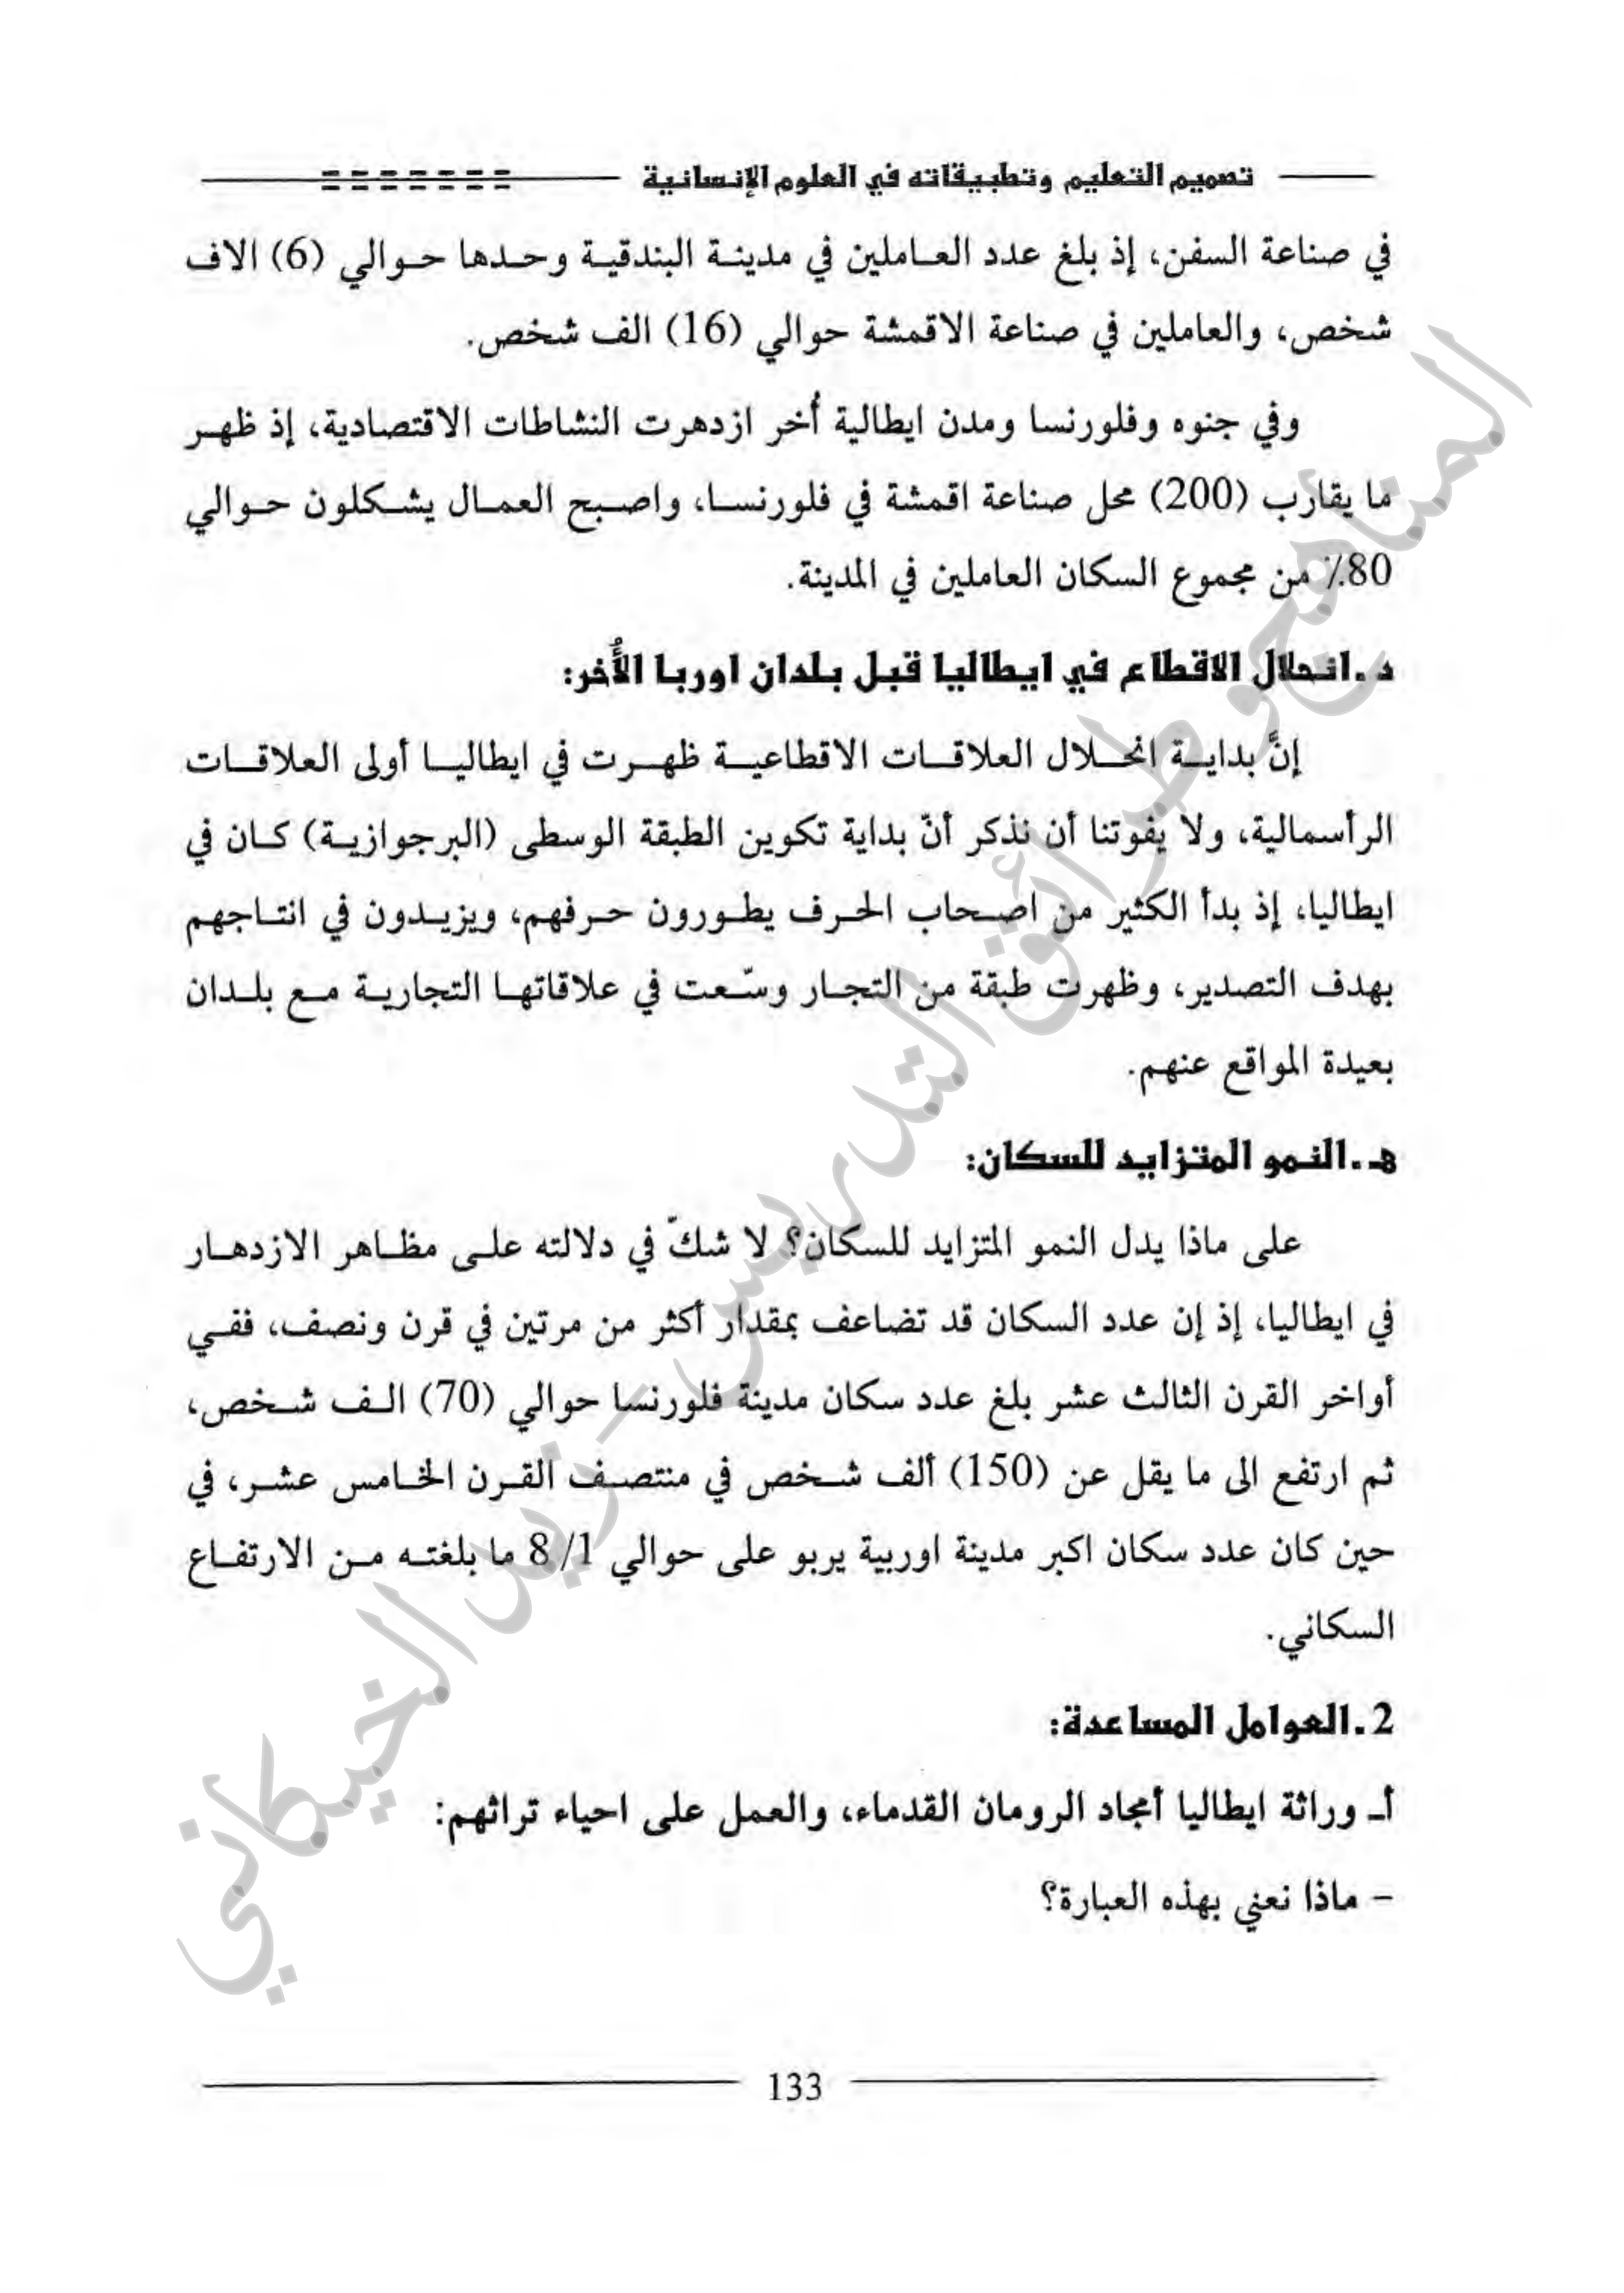 تصميم التعليم وتطبيقاته في العلوم الإنسانية
في صناعة السفن، إذ بلغ عدد العاملين في مدينة البندقية وحدها حوالي (6) الاف
شخص، والعاملين في صناعة الاقمشة حوالي (16) الف شخص.
وفي جنوه وفلورنسا ومدن ايطالية أُخر ازدهرت النشاطات الاقتصادية، إذ ظهر
ما يقارب (200) محل صناعة اقمشة في فلورنسا، واصبح العمال يشكلون حوالي
80٪ من مجموع السكان العاملين في المدينة.
د. انحلال الاقطاع في ايطاليا قبل بلدان اوربا الأُخر:
إنَّ بداية انحلال العلاقات الاقطاعية ظهرت في ايطاليا أولى العلاقات
الرأسمالية، ولا يفوتنا أن نذكر أنّ بداية تكوين الطبقة الوسطى (البرجوازية) كان في
ايطاليا، إذ بدأ الكثير من اصحاب الحرف يطورون حرفهم، ويزيدون في انتاجهم
بهدف التصدير، وظهرت طبقة من التجار وسّعت في علاقاتها التجارية مع بلدان
بعيدة المواقع عنهم.
هـ. النمو المتزايد للسكان:
على ماذا يدل النمو المتزايد للسكان؟ لا شكّ في دلالته على مظاهر الازدهار
في ايطاليا، إذ إن عدد السكان قد تضاعف بمقدار أكثر من مرتين في قرن ونصف، ففي
أواخر القرن الثالث عشر بلغ عدد سكان مدينة فلورنسا حوالي (70) الف شخص،
ثم ارتفع الى ما يقل عن (150) ألف شخص في منتصف القرن الخامس عشر، في
حين كان عدد سكان اكبر مدينة اوربية يربو على حوالي 8/1 ما بلغته من الارتفاع
السكاني.
2. العوامل المساعدة:
أـ وراثة ايطاليا أمجاد الرومان القدماء، والعمل على احياء تراثهم:
– ماذا نعني بهذه العبارة؟
133
المناهج وطرائق التدريس - زيد الخيكاني